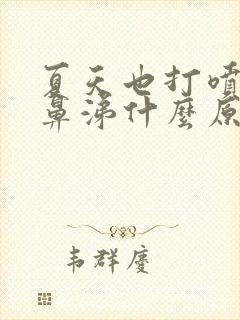 夏天也打噴
鼻涕什麼原
韦群慶